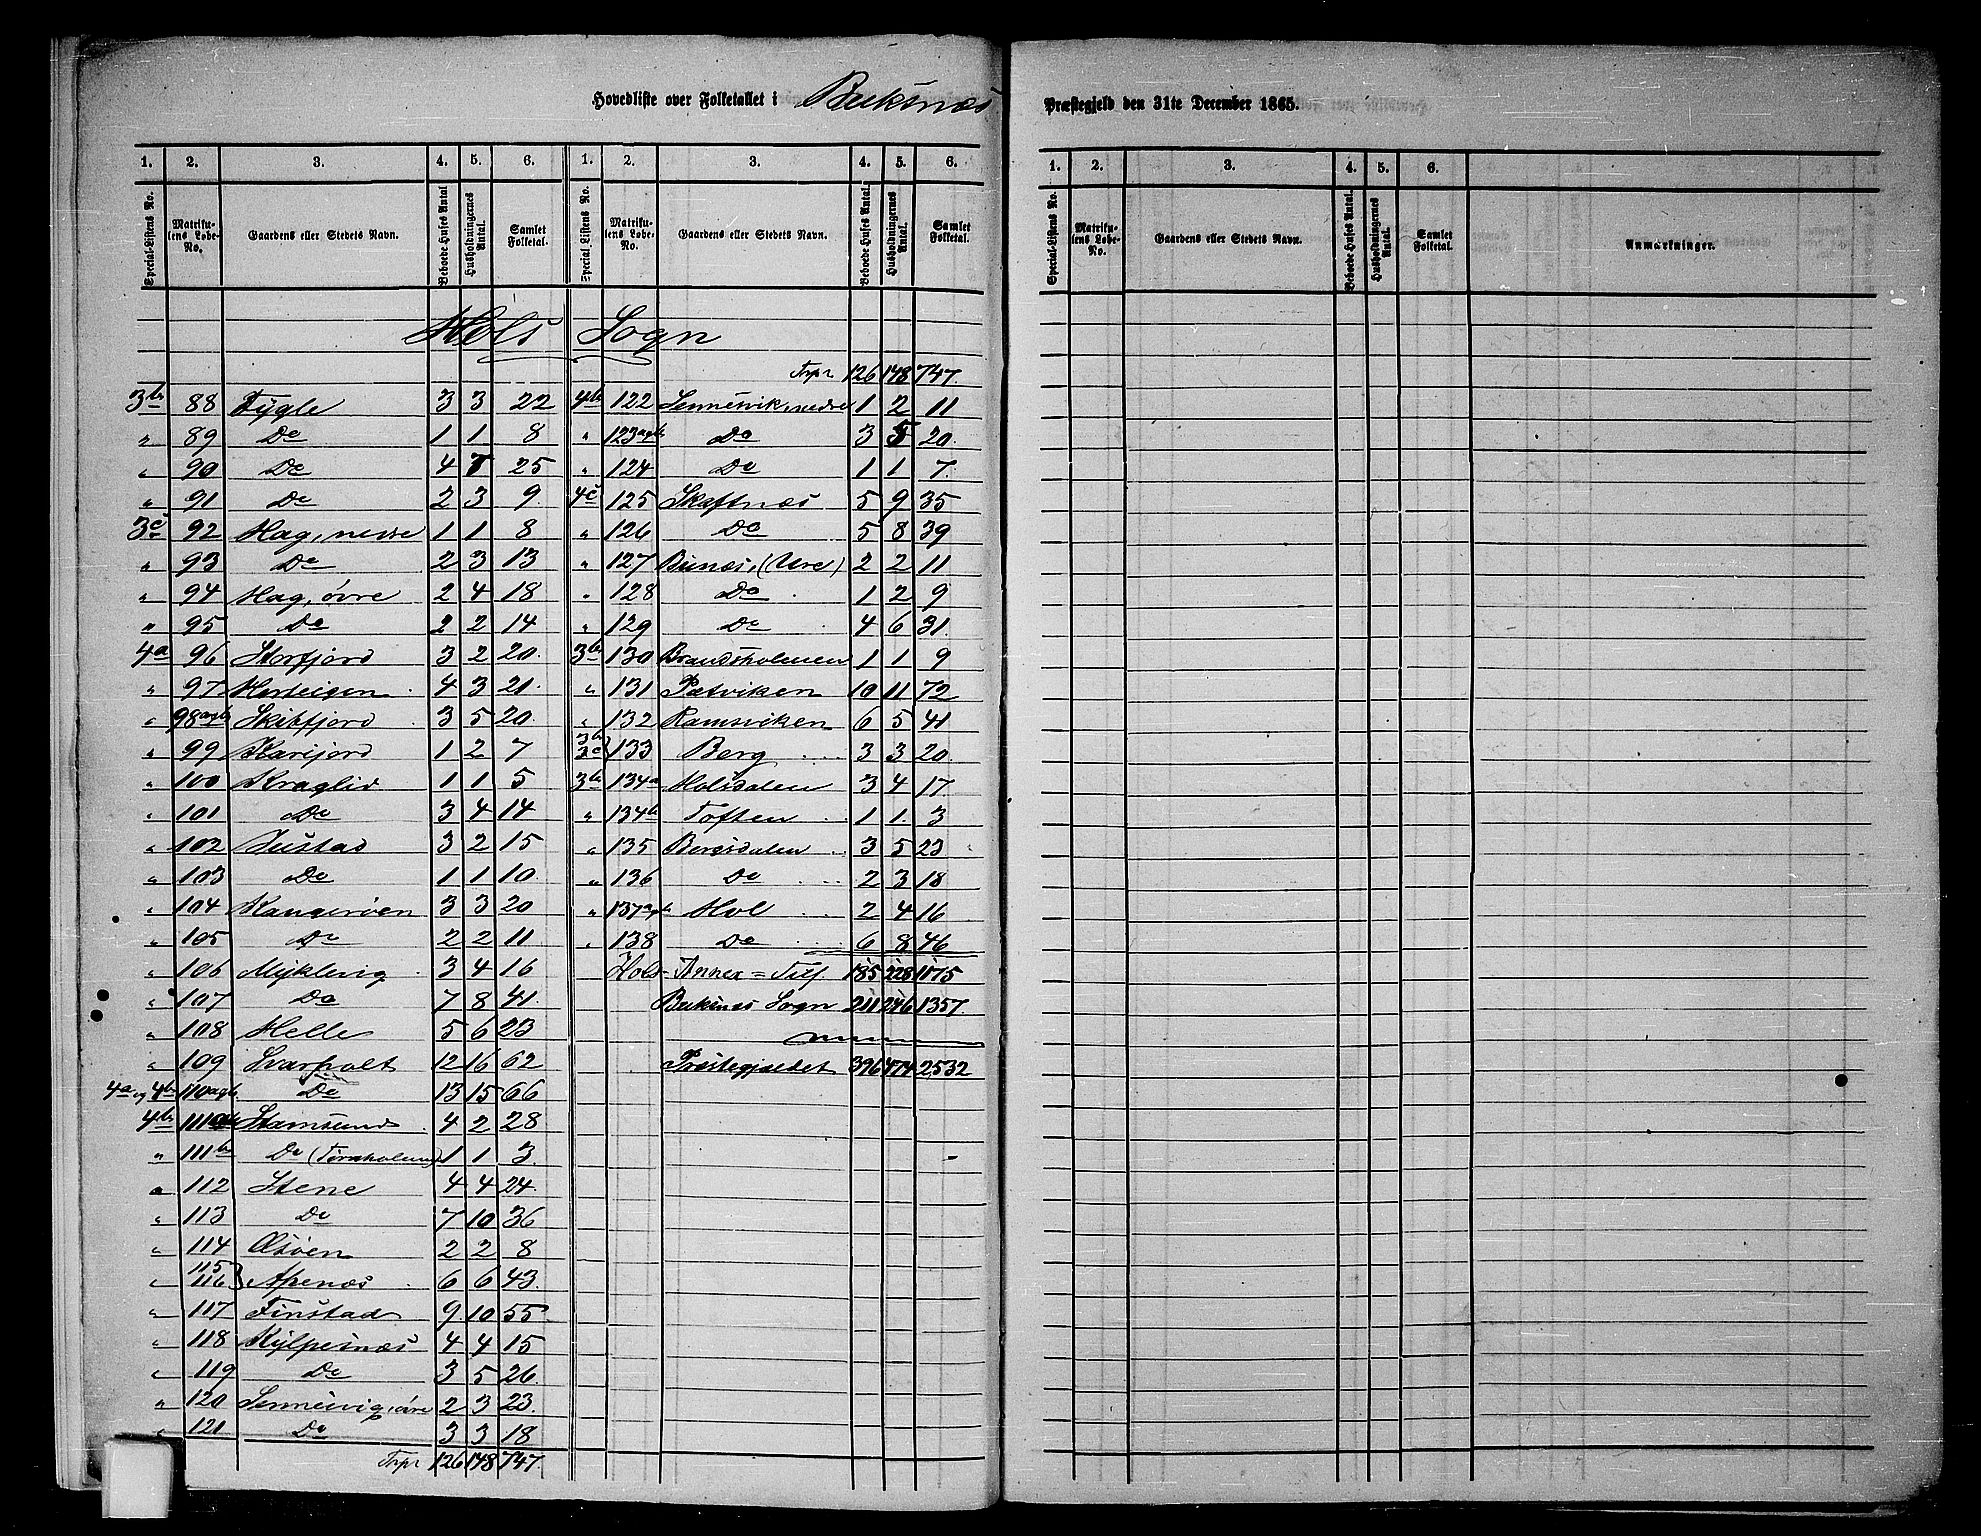 Hovedliste over Folketallet i Buksnæs Præstegjeld den 31te December 1865.
1. 2. 3. 4. 5. 6. 1. 2. 3. 4. 5. 6.
Special-Listens No. Matrikulens Løbe-No. Gaardens eller Stedets Navn. Beboede Huses Antal Husholdningernes Antal. Samlet Folketal. Special-Listens No. Matrikulens Løbe-No. Gaardens eller Stedets Navn. Beboede Huses Antal. Husholdningernes Antal. Samlet Folketal.
Hols Sogn
3b 88 Fygle 3 3 22
" 89 Do 1 1 8
" 90 Do 4 7 25
" 91 Do 2 3 9.
3c 92 Hag, nedre 1 1 8
" 93 Do 2 3 13
" 94 Hag, øvre 2 4 18
" 95 Do 2 2 14
4a 96 Storfjord 3 2 20.
" 97 Horteigen 4 3 21.
" 98a&b Skibfjord 3 5 20.
" 99 Harijord 1 2 7
" 100 Kraglid 1 1 5
" 101 Do 3 4 14
" 102 Justad 3 2 15
" 103 Do 1 1 10.
" 104 Kangerøen 3 3 20
" 105 Do 2 2 11
" 106 Myklevig 3 4 16
" 107 Do 7 8 41.
" 108 Helle 5 6 23
" 109 Svarholt 12 16 62
4a og 4b 110a&b Do 13 15 66
4b 111a Stamsund 4 2 28
" 111b Do (Tornholmen) 1 1 3.
" 112 Stene 4 4 24.
" 113 Do 7 10 36
" 114 Æsøen 2 2 8
" 115 116 } Apenæs 6 6 43.
" 117 Finstad 9 10 55
" 118 Kylpesnæs 4 4 15
" 119 Do 3 5 26
" 120 Sennesvig, øvre 2 3 23.
" 121 Do 3 3 18
Trpr 126 148 747.
Trpr 126 148 747.
4b 122 Sennesvik, nedre 1 2 11
" 123a&b Do 3 5 20.
" 124 Do 1 1 7.
4c 125 Skaftnæs 5 9 35
" 126 Do 5 8 39
" 127 Bunæs, (Ure) 2 2 11
" 128 Do 1 2 9
" 129 Do 4 6 31.
3b 130 Brandsholmen 1 1 9
" 131 Petviken 10 11 72
" 132 Ramsviken 6 5 41
3b 3c } 133 Berg 3 3 20
3b 134a Holsdalen 3 4 17
" 134b Toften 1 1. 3
" 135 Borgsdalen 3 5 23
" 136 Do 2 3 18
" 137a&b Hol 2 4 16
" 138 Do 6 8 46
Hols-Annex=Tils 185 228 1175
Buksnes Sogn 211 246 1357.
Præstegjældet 396 474 2532
1. 2. 3. 4. 5. 6.
Special-Listens No. Matrikulens Løbe-No. Gaardens eller Stedets Navn. Beboede Huses Antal. Husholdningernes Antal. Samlet Folketal. Anmærkninger.